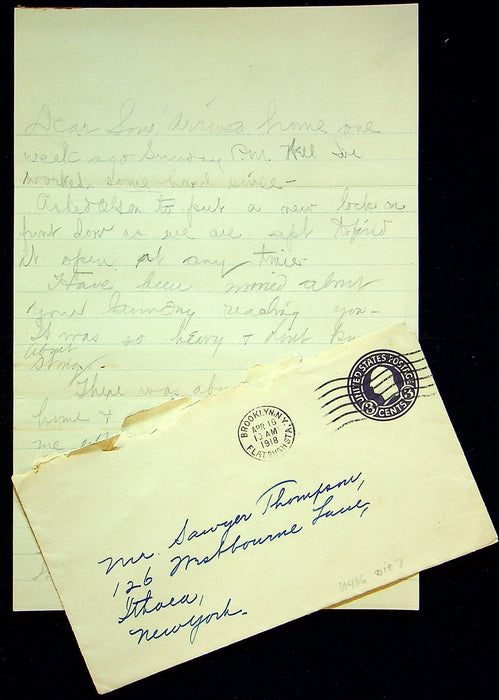 Dear Son, Arrived home one
week ago Sunday P.M. Well I've
worked some hard since -
Asked Olsen to put a new lock on
front door as we are apt to find
it open at any time
Have been worried about
your laundry reaching you -
It was so heavy + dont
about
string.
There was
home +
me
UNITED STATES POSTAGE
3 CENTS 3
BROOKLYN, N.Y.
APR 16
1 AM
1918
FLATBUSH STA.
Mr. Sawyer Thompson,
126 Westbourne Lane,
Ithaca,
New York.
U436 Die 7